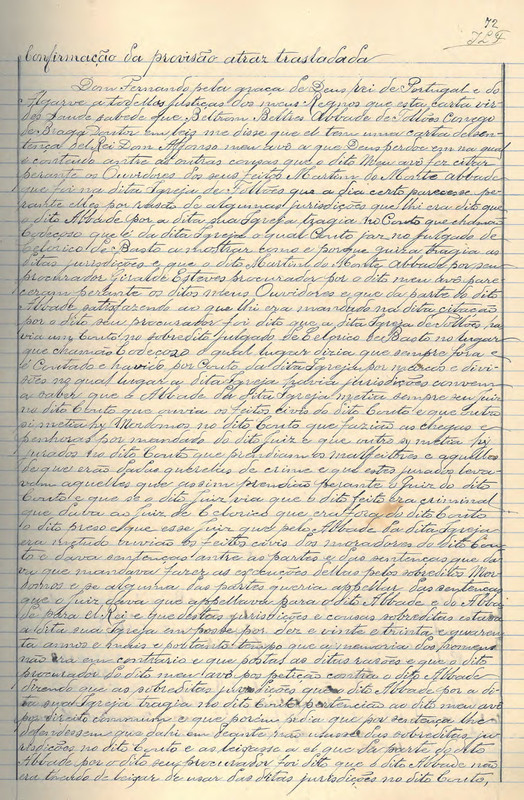 72
Confirmação da provisão atraz trasladada
Dom Fernando pela graça de Deus rei de Portugal e do
Algarve a todollas justiças dos meus Regnos que esta carta vir
des saude sabede que Beltrom Beltres Abbade de Tollões Conego
de Braga Doutor em leis me disse que el tem uma carta de sen
tença del Rei Dom Affonso meu avô a que Deus perdoe em na qual
é conteudo antre as outras cousas que o dito meu avô fez citar
perante os Ouvidores dos seus feitos Martim do Monte abbade
que foi na dita Igreja de Tollões que a dia certo parecesse pe
rante elles por rasão de algumas jurisdicções que lhi era dito que
o dito Abbade por a dita sua Igreja tragia no Conto que chamam
Codeçoso que é da dita Igreja o qual Couto jaz no julgado de
Celorico de Basto a mostrar como e porque guiza tragia as
ditas jurisdicções e que o dito Martim do Monte Abbade por seu
procurador Giraldo Esteves procurador por o dito meu avô pare
ceram perante os ditos meus Ouvidores e que da parte do dito
Abbade satisfazendo ao que lhi era mandado na dita citação
por o dito seu procurador foi dito que a dita Igreja de Tollões ha
via um Couto no sobredito julgado de Celorico de Basto no lugar
que chamão Codeçozo o qual lugar dizia que sempre fora e
é Contado e havido por Couto da dita Igreja por marcos e divi
sões no qual lugar a dita Igreja havia jurisdicções convem
a saber que o Abbade da dita Igreja metia sempre seu juiz
no dito Couto que ouvia os feitos civis do dito Couto e que outro
si metia hy Mordomos no dito Couto que fazião as chegas e
penhoras por mandado do dito juiz e que outro sy metia hy
jurados no dito Couto que prendiam os malfeitores e aquelles
de que erão dadas querelas de crime e que estes jurados leva
vam aquelles que assim prendião perante o juiz do dito
Couto e que se o dito juiz via que o dito feito era criminal
que dava ao juiz de Celorico que era fora do dito Couto
o dito preso e que esse juiz que pelo Abbade da dita Igreja
era metudo ouvia os feitos civis dos moradores do dito Cou
to e dava sentenças antre as partes e das sentenças que da
va que mandava fazer as execuções dellas pelos sobreditos Mor
domos e se alguma das partes queria appellar das sentenças
que o juiz dava que appellava para o dito Abbade e do Abba
de para El Rei e que destas jurisdicções e cousas sobreditas estava
a dita sua Igreja em posse por dez e vinte e trinta e quaren
ta annos e mais e por tanto tempo que a memoria dos homens
não era em contrario e que postas as ditas rasões e que o dito
procurador do dito meu avô pos petição contra o dito Abbade
dizendo que as sobreditas jurisdicções que o dito Abbade por a di
ta sua Igreja tragia no dito Couto pertencião ao dito meu avô
por direito commum e que porém pidia que por sentença lhe
defendessem que dahi em deante não usasse das sobreditas ju
risdicções no dito Couto e as leixasse a el que da parte do dito
Abbade por o dito seu procurador foi dito que o dito Abbade não
era teudo de leixar de usar das ditas jurisdicções no dito Couto,